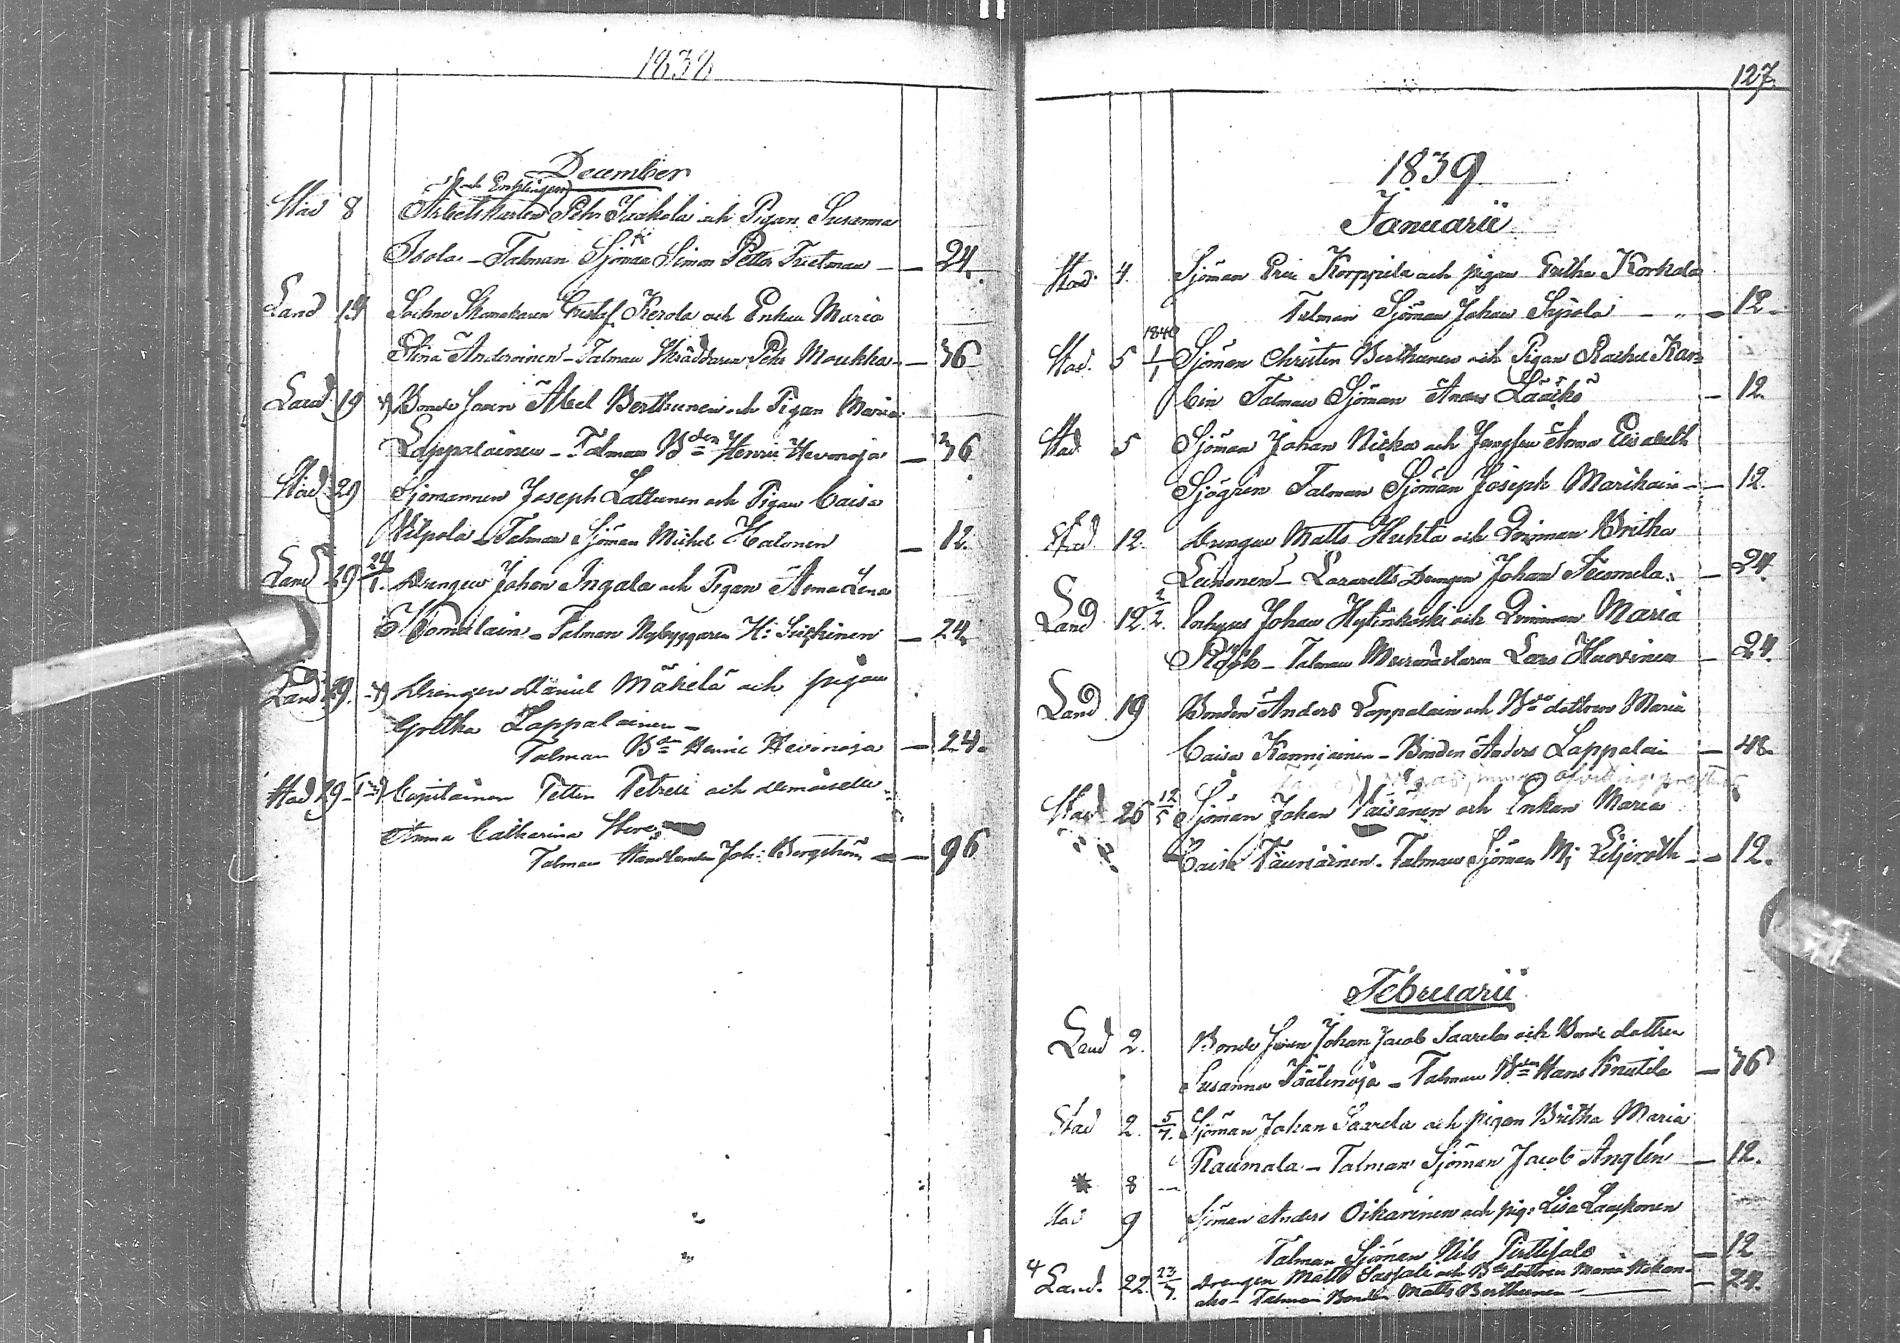 1838
December
Stad 8 Arbetskarlen Pehr Jaakola och Pigan Susanna
Isola - Talman Sjöman Simon Petter - 24.
Land 14 Sochne Skomakaren Gustaf Kerola och Enkan Maria
Stina Andersinen - Talman Skräddaren Pehr Moukka - 36
Land 19 Bonde Sonen Abel Berthunen och Pigan Maria
Lappalainen - Talman Bden Henric Hevonoja - 36
Stad 29 Sjömannen Joseph Lattunen och Pigan Caisa
Vilpola - Talman Sjöman Michel Halonen - 12.
Land 29 24/1. Drengen Johan Ingala och Pigan Anna Lena
Komulain - Talman Nybyggaren H: - 24.
Land 29. Drengen Daniel Mäkelä och pigan
Gretha Lappalainen -
Talman Bden Henric Hevonoja - 24.
Stad 29 Capitainen Petter Petrell och Demoiselle
Anna Catharina
Talman Handlanden Joh: Bergström - 96
127.
1839.
Januarii
Stad. 4. Sjöman Eric Korppila och pigan Gretha Korkala
Talman Sjöman Johan Sipola - 12.
Stad. 5 1840 1/1 Sjöman Christer Berthunen och Pigan Rachel Kar
bin Talman Sjöman Anders Lääkö - 12.
Stad 5 Sjöman Johan Niska och Jungfru Anna Elisabeth
Sjögren Talman Sjöman Joseph Marikain - 12.
Stad 12. Drengen Matts Huhta och Qvinnan Britha
Leinonen - Lazaretts Drengen Johan Tuomela. - 24.
Land 12. 2/2. Inhyses Johan Hylinkoski och Qvinnan Maria
Rosk - Talman Murmästaren Lars Huovinen - 24.
Land 19 Bonden Anders Lappalain och Bde dottren Maria
Caisa Kanniainen - Bonden Anders Lappalai - 48.
Stad 26 12/5 Sjöman Johan Väisänen och Enkan Maria
Caisa Tauriainen. Talman Sjöman M; Liljeroth - 12.
Februarii
Land 2. Bonde Sonen Johan Jacob Saarela och Bonde dottren
Susanna Säälinoja - Talman Bden Hans Knutila - 36
Stad 2. 5/7. Sjöman Johan Saarela och pigan Britha Maria
Raumala - Talman Sjöman Jacob Anglén - 12.
* 8 -
Stad 9 Sjöman Anders Oikarinen och pig: Lisa Laaskonen
Talman Sjöman Nils Pirttisalo - 12
4 Land. 22. 23/7. Drengen Matts Sarsali och Bde dottren Maria Mikan-
aho - Talman Bonden Matts Berthunen - 24.